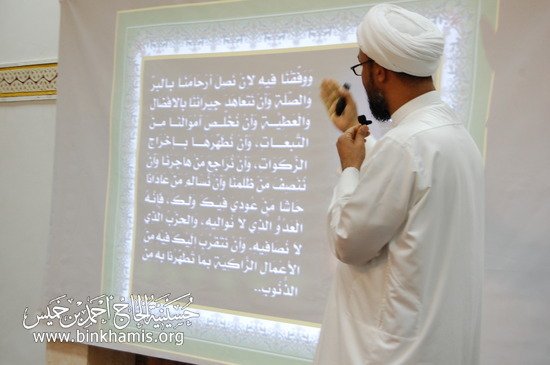 ووفّقنا فيه لأن نصل أرحامنا بالبرّ
والصّلة وأن نتعاهد جيراننا بالافضال
والعطيّة وأن نخلّص أموالنا من
التّبعات، وأن نطهّرها بإخراج
الزّكوات، وأن نراجع من هاجرنا وأن
ننصف من ظلمنا وأن نسالم من عادانا
حاشا من عودي فيك ولك، فإنّه
العدوّ الذي لا نواليه، والحزب الذي
لا نصافيه. وأن نتقرّب إليك فيه من
الأعمال الزّاكية بما تطهّرنا به من
الذّنوب..
حسينية الحاج أحمد بن خميس
www.binkhamis.org